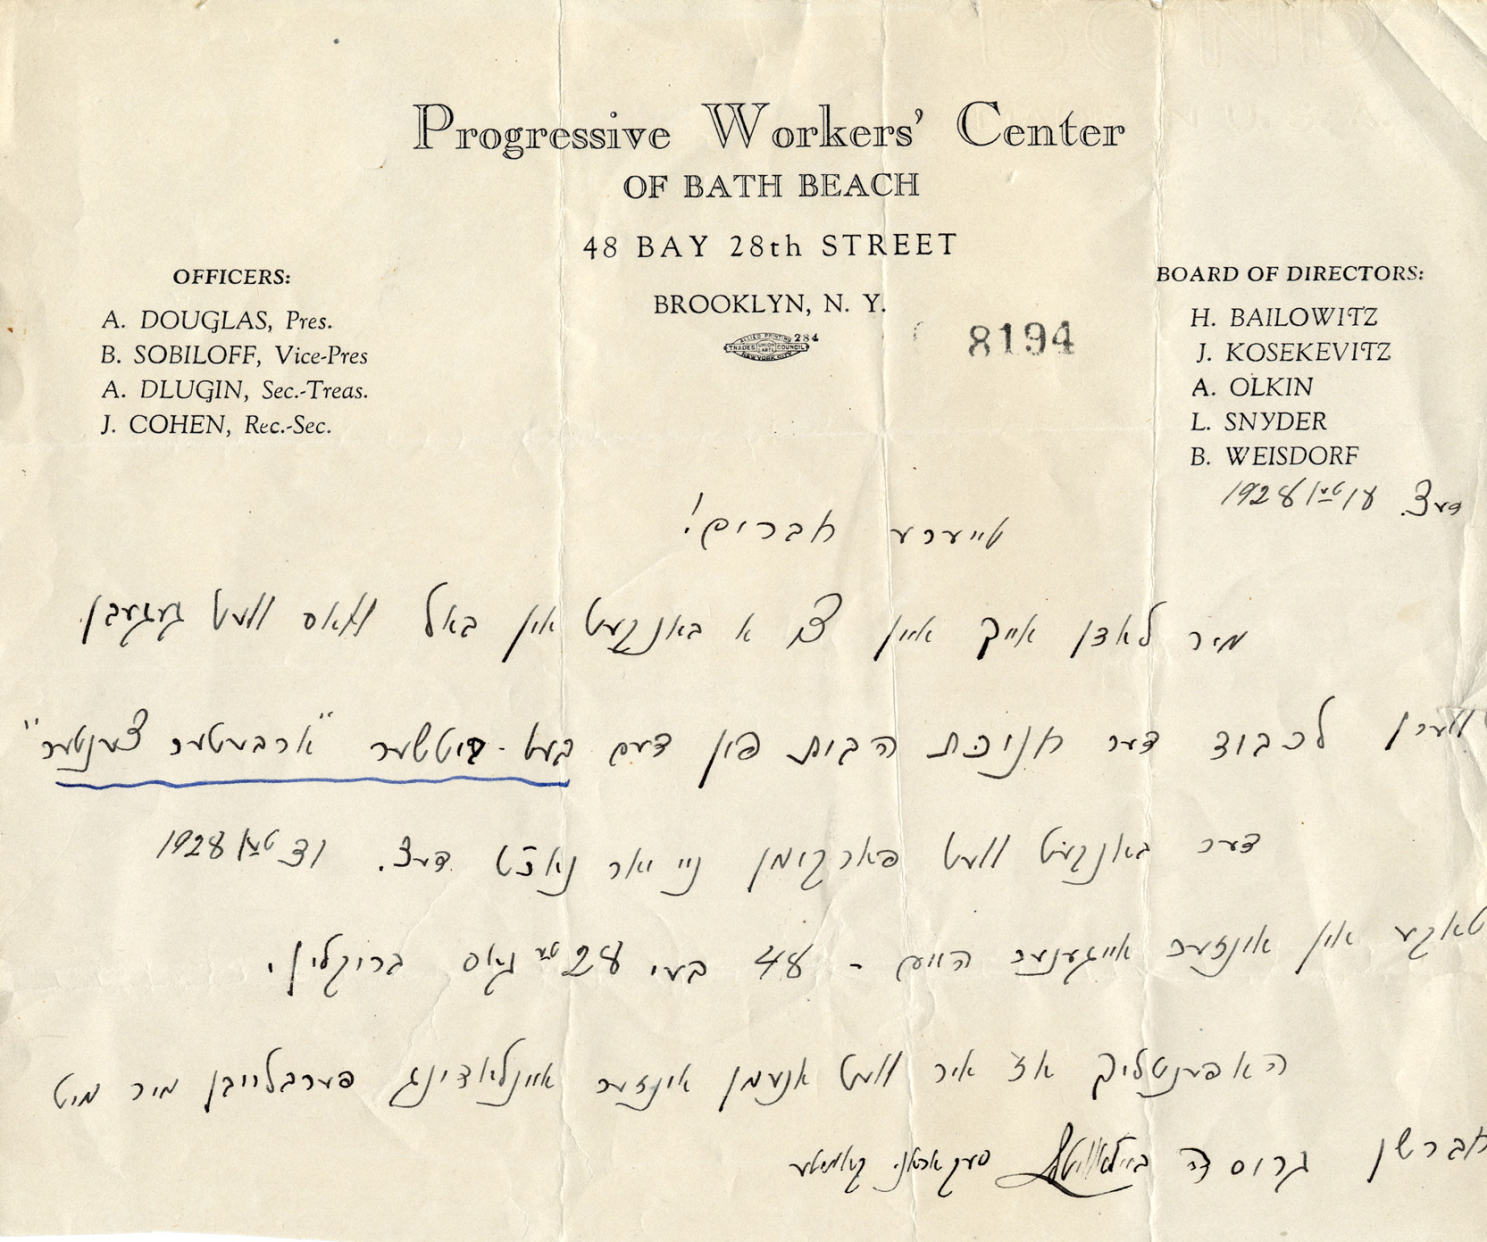 Progressive Workers' Center
OF BATH BEACH
48 BAY 28th STREET
BROOKLYN, N. Y.
ALLIED PRINTING
TRADES UNION LABEL COUNCIL
NEW YORK CITY
284
8194
OFFICERS:
A. DOUGLAS, Pres.
B. SOBILOFF, Vice-Pres
A. DLUGIN, Sec.-Treas.
J. COHEN, Rec.-Sec.
BOARD OF DIRECTORS:
H. BAILOWITZ
J. KOSEKEVITZ
A. OLKIN
L. SNYDER
B. WEISDORF
דעצ. 18טן 1928
טייערע חברים!
מיר לאדן אייך איין צו א באנקעט אין באל וואס וועט געגעבן
ווערן לכבוד דער חנוכת הבית פון דעם בעט-ביטשער "ארבעטער צענטער"
דער באנקעט וועט פארקומען ניי יאר נאכט דעצ. 31טן 1928
טאקע אין אונזער אייגענער היים - 48 בעי 28טע גאס ברוקלין.
האפענטליך אז איר וועט אנעמען אונזער איינלאדונג פערבלייבן מיר מיט
חברשן גרוס ה. ביילאוויטש